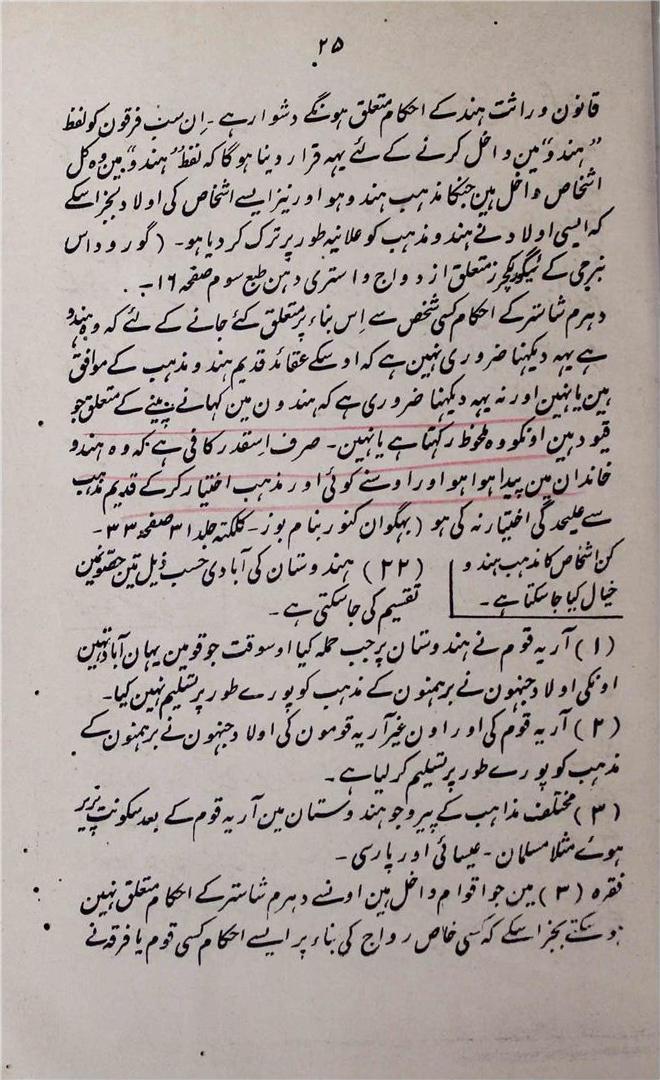 ۲۵
قانون وراثت ہند کے احکام متعلق ہونگے دشوار ہے ۔ اِن سب فرقون کو لفظ
”ہندو“ مین داخل کرنے کے لئے یہہ قرار دینا ہوگا کہ لفظ ”ہندو“ مین وہ کل
اشخاص داخل ہین جنکا مذہب ہندو ہو اور نیز ایسے اشخاص کی اولاد بجز اسکے
کہ ایسی اولاد نے ہندو مذہب کو علانیہ طور پر ترک کردیا ہو ۔ (گورو داس
بنرجی کے ٹیگور لکچرز متعلق ازدواج و استری دہن طبع سوم صفحہ ۱۶ ۔
دہرم شاستر کے احکام کسی شخص سے اِس بناء پر متعلق کئے جانے کے لئے کہ وہ ہندو
ہے یہہ دیکہنا ضروری نہین ہے کہ اوسکے عقائد قدیم ہندو مذہب کے موافق
ہین یا نہین اور نہ یہہ دیکہنا ضروری ہے کہ ہندون مین کہانے پینے کے متعلق جو
قیود ہین اونکو وہ ملحوظ رکہتا ہے یا نہین ۔ صرف اسقدر کافی ہے کہ وہ ہندو
خاندان مین پیدا ہوا ہو اور اوسنے کوئی اور مذہب اختیار کرکے قدیم مذہب
سے علیحدگی اختیار نہ کی ہو (بہگوان کنور بنام بوز ۔ کلکتہ جلد ۳۱ صفحہ ۳۳ ۔
کن اشخاص کا مذہب ہندو
خیال کیا جاسکتا ہے ۔
(۲۲) ہندوستان کی آبادی حسب ذیل تین حصّونمین
تقسیم کی جاسکتی ہے ۔
(۱) آریہ قوم نے ہندوستان پر جب حملہ کیا اوسوقت جو قومین یہان آباد تہین
اونکی اولاد جنہون نے برہمنون کے مذہب کو پورے طور پر تسلیم نہین کیا ۔
(۲) آریہ قوم کی اور اون غیر آریہ قومون کی اولاد جنہون نے برہمنون کے
مذہب کو پورے طور پر تسلیم کرلیا ہے ۔
(۳) مختلف مذاہب کے پیرو جو ہندوستان مین آریہ قوم کے بعد سکونت پزیر
ہوئے مثلا مسلمان ۔ عیسائی اور پارسی ۔
فقرہ (۳) مین جو اقوام داخل ہین اونسے دہرم شاستر کے احکام متعلق نہین
ہوسکتے بجز اسکے کہ کسی خاص رواج کی بناء پر ایسے احکام کسی قوم یا فرقہ نے